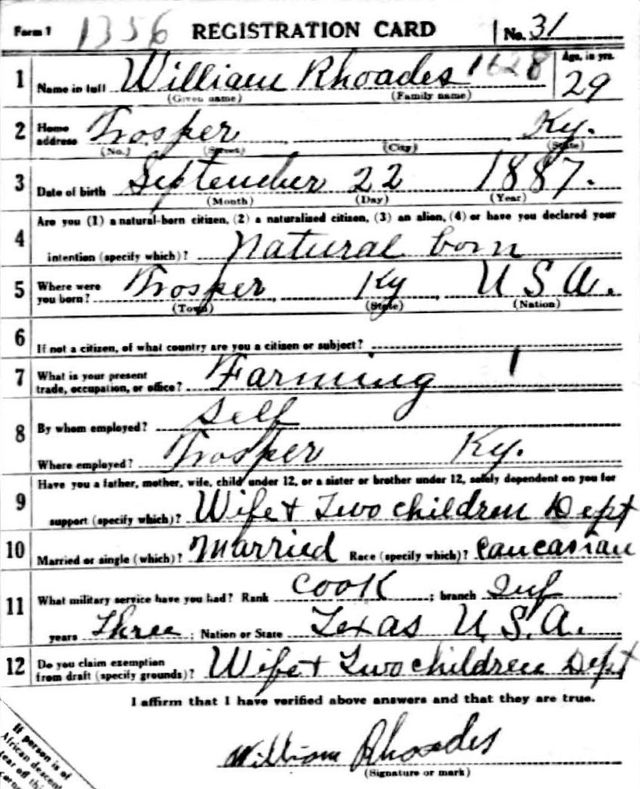 Form 1 1356 REGISTRATION CARD No. 31
1 Name in full William Rhoades 1628 Age, in yrs. 29
(Given name) (Family name)
2 Home address Trosper Ky.
(No.) (Street) (City) (State)
3 Date of birth September 22 1887.
(Month) (Day) (Year)
4 Are you (1) a natural-born citizen, (2) a naturalized citizen, (3) an alien, (4) or have you declared your
intention (specify which)? Natural born
5 Where were you born? Trosper Ky U S A.
(Town) (State) (Nation)
6 If not a citizen, of what country are you a citizen or subject?
7 What is your present trade, occupation, or office? Farming 1
8 By whom employed? Self
Where employed? Trosper Ky.
9 Have you a father, mother, wife, child under 12, or a sister or brother under 12, solely dependent on you for
support (specify which)? Wife + Two children Dept
10 Married or single (which)? Married Race (specify which)? Caucasian
11 What military service have you had? Rank Cook ; branch Inf
years Three ; Nation or State Texas U.S.A.
12 Do you claim exemption from draft (specify grounds)? Wife + Two children Dept
I affirm that I have verified above answers and that they are true.
William Rhoades
(Signature or mark)
If person is of
African descent
tear off this